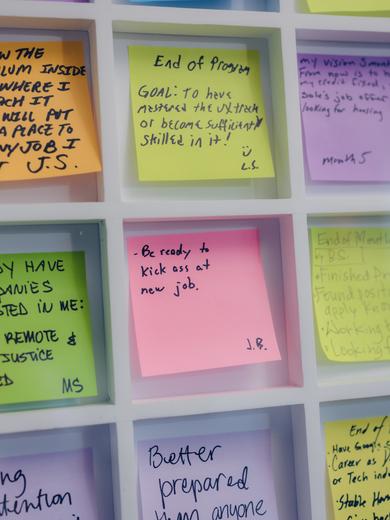 W THE
LUM INSIDE
WHERE I
ACH IT
WILL PUT
A PLACE TO
NY JOB I
J.S.
End of Program
GOAL: To have
mastered the UX track
or become sufficiently
skilled in it!
L.S.
my vision
From now is to
my credit fixed,
job office
looking for housing
month 5
DY HAVE
PANIES
STED IN ME:
REMOTE &
JUSTICE
ED
MS
- Be ready to
Kick ass at
new job.
J.B.
End of Month
B.S.
Finished
Found position
apply
Working
Looking
ng
ttention
Better
prepared
than anyone
End of
Have Google
Career as
or Tech ind
Stable Hous